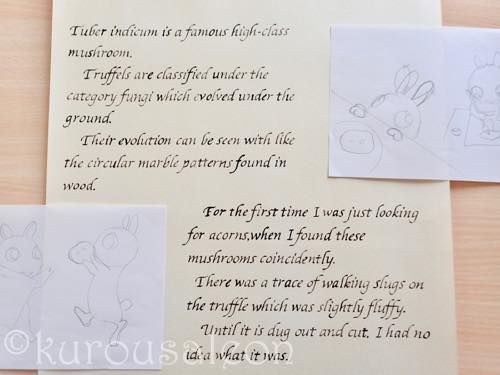 Tuber indicum is a famous high-class
mushroom.
Truffels are classified under the
category fungi which evolved under the
ground.
Their evolution can be seen with like
the circular marble patterns found in
wood.
For the first time I was just looking
for acorns,when I found these
mushrooms coincidently.
There was a trace of walking slugs on
the truffle which was slightly fluffy.
Until it is dug out and cut, I had no
idea what it was.
©kurousalson